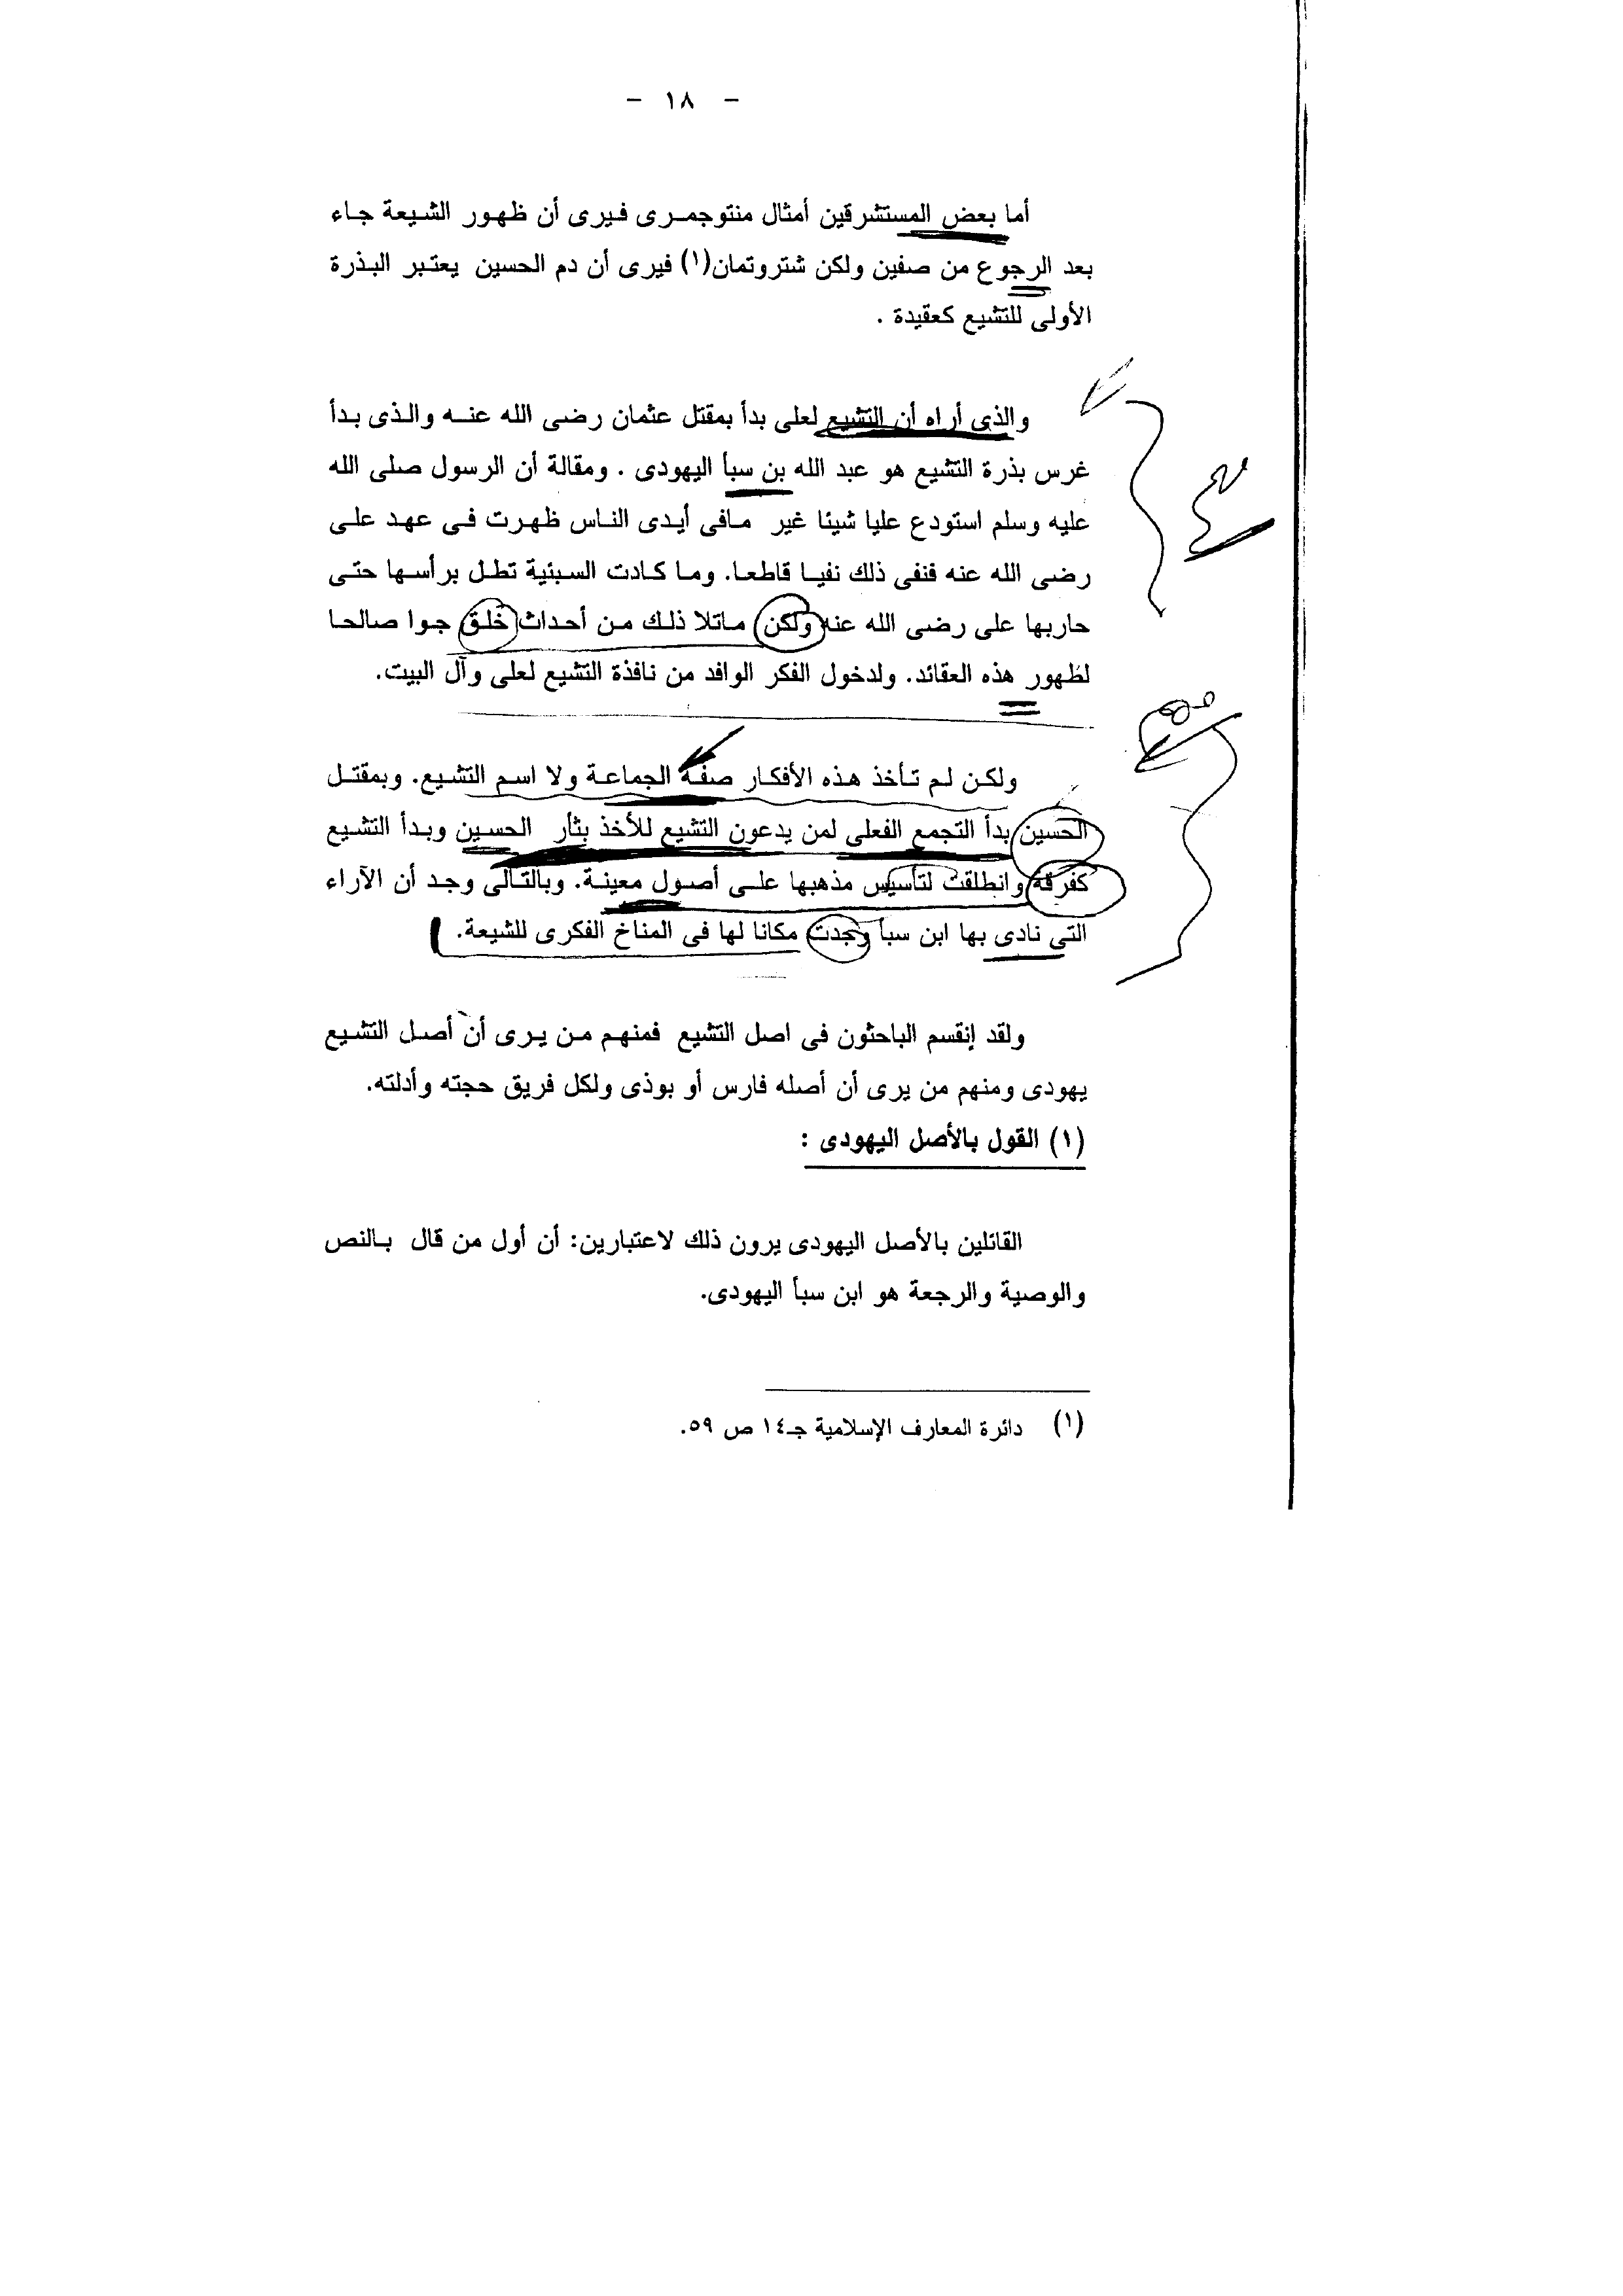 - ١٨ -
أما بعض المستشرقين أمثال منتوجمرى فيرى أن ظهور الشيعة جاء
بعد الرجوع من صفين ولكن شتروتمان(١) فيرى أن دم الحسين يعتبر البذرة
الأولى للتشيع كعقيدة .
والذى أراه أن التشيع لعلى بدأ بمقتل عثمان رضى الله عنه والذى بدأ
غرس بذرة التشيع هو عبد الله بن سبأ اليهودى . ومقالة أن الرسول صلى الله
عليه وسلم استودع عليا شيئا غير مافى أيدى الناس ظهرت فى عهد على
رضى الله عنه فنفى ذلك نفيا قاطعا. وما كادت السبئية تطل برأسها حتى
حاربها على رضى الله عنه ولكن ماتلا ذلك من أحداث خلق جوا صالحا
لظهور هذه العقائد. ولدخول الفكر الوافد من نافذة التشيع لعلى وآل البيت.
ولكن لم تأخذ هذه الأفكار صفة الجماعة ولا اسم التشيع. وبمقتل
الحسين بدأ التجمع الفعلى لمن يدعون التشيع للأخذ بثأر الحسين وبدأ التشيع
كفرقة وانطلقت لتأسيس مذهبها على أصول معينة. وبالتالى وجد أن الآراء
التى نادى بها ابن سبأ وجدت مكانا لها فى المناخ الفكرى للشيعة.
ولقد إنقسم الباحثون فى اصل التشيع فمنهم من يرى أن أصل التشيع
يهودى ومنهم من يرى أن أصله فارس أو بوذى ولكل فريق حجته وأدلته.
(١) القول بالأصل اليهودى :
القائلين بالأصل اليهودى يرون ذلك لاعتبارين: أن أول من قال بالنص
والوصية والرجعة هو ابن سبأ اليهودى.
(١) دائرة المعارف الإسلامية جـ١٤ ص ٥٩.